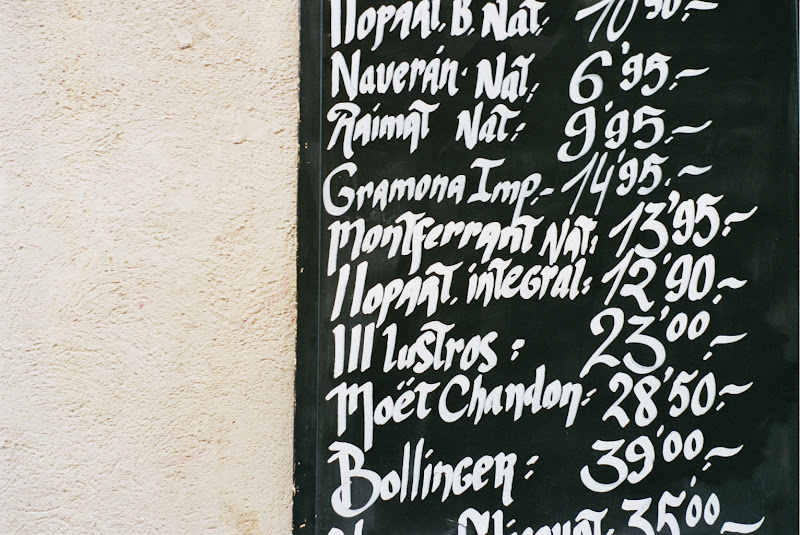 Llopart. B. Nat: 10'50.-
Naverán Nat: 6'95.-
Raimat Nat: 9'95.-
Gramona Imp.- 14'95.-
Montferrant Nat: 13'95.-
Llopart. integral: 12'90.-
III lustros: 23'00.-
Moët Chandon: 28'50.-
Bollinger: 39'00.-
35'00.-